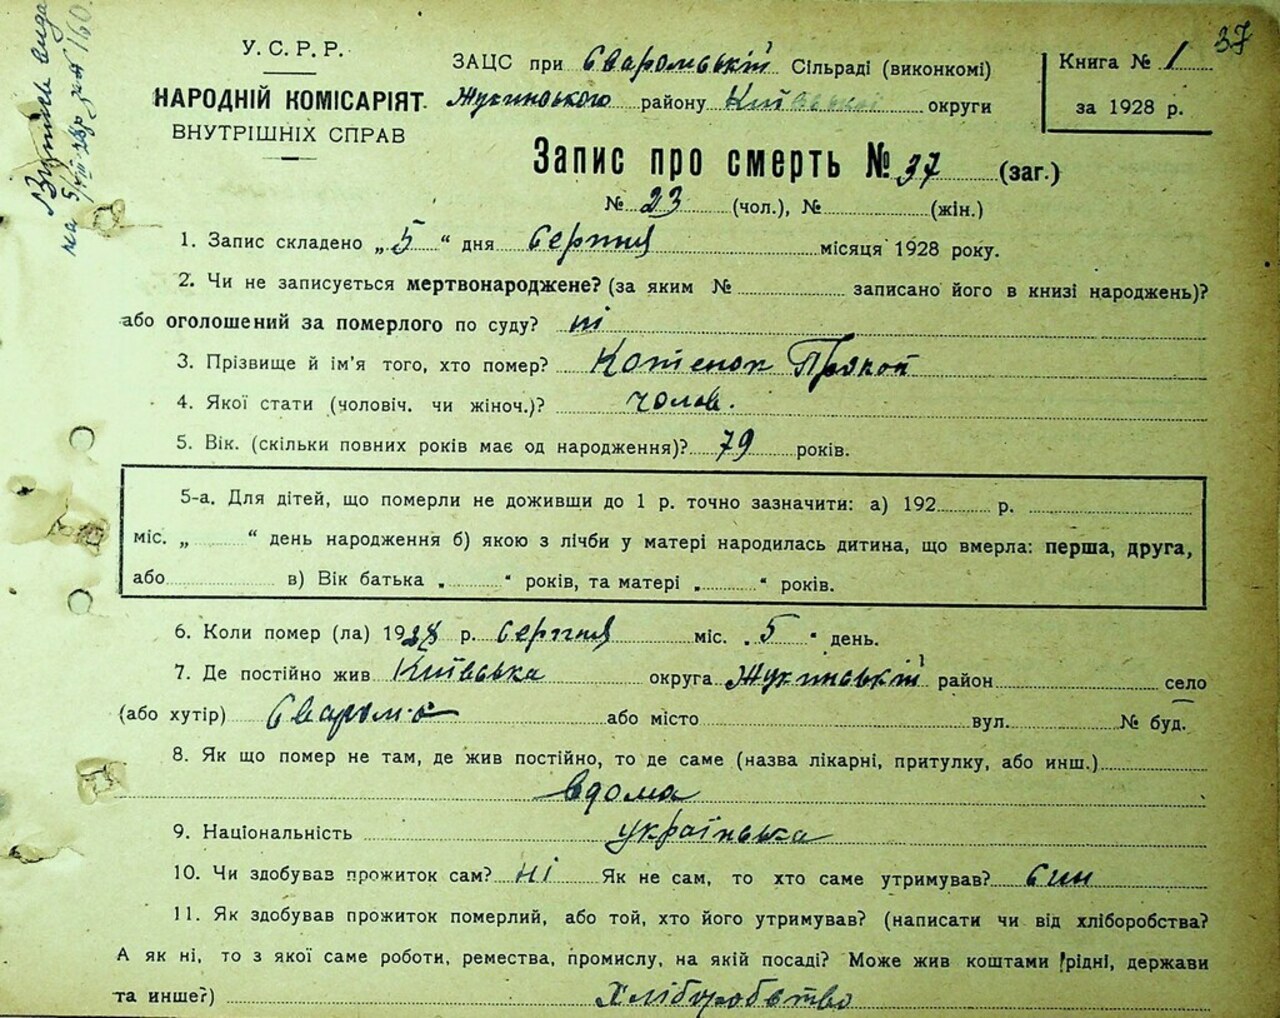 37
Витяг вида
на 5/VIII 28р за № 160.
У. С. Р. Р.
НАРОДНІЙ КОМІСАРІЯТ
ВНУТРІШНІХ СПРАВ
ЗАЦС при Сваромській Сільраді (виконкомі)
Жукинського району Київської округи
Книга № 1
за 1928 р.
Запис про смерть № 37 (заг.)
№ 23 (чол.), № (жін.)
1. Запис складено „ 5 “ дня Серпня місяця 1928 року.
2. Чи не записується мертвонароджене? (за яким № записано його в книзі народжень)?
або оголошений за померлого по суду? ні
3. Прізвище й ім'я того, хто помер? Котенок Прокоп
4. Якої стати (чоловіч. чи жіноч.)? чолов.
5. Вік. (скільки повних років має од народження)? 79 років.
5-а. Для дітей, що померли не доживши до 1 р. точно зазначити: а) 192 р.
міс. „ “ день народження б) якою з лічби у матері народилась дитина, що вмерла: перша, друга,
або в) Вік батька „ “ років, та матері „ “ років.
6. Коли помер (ла) 1928 р. Серпня міс. „ 5 “ день.
7. Де постійно жив Київська округа Жукинський район село
(або хутір) Сваромє або місто вул. № буд.
8. Як що помер не там, де жив постійно, то де саме (назва лікарні, притулку, або инш.)
вдома
9. Національність українська
10. Чи здобував прожиток сам? ні Як не сам, то хто саме утримував? син
11. Як здобував прожиток померлий, або той, хто його утримував? (написати чи від хліборобства?
А як ні, то з якої саме роботи, ремества, промислу, на якій посаді? Може жив коштами рідні, держави
та инше?) Хліборобство